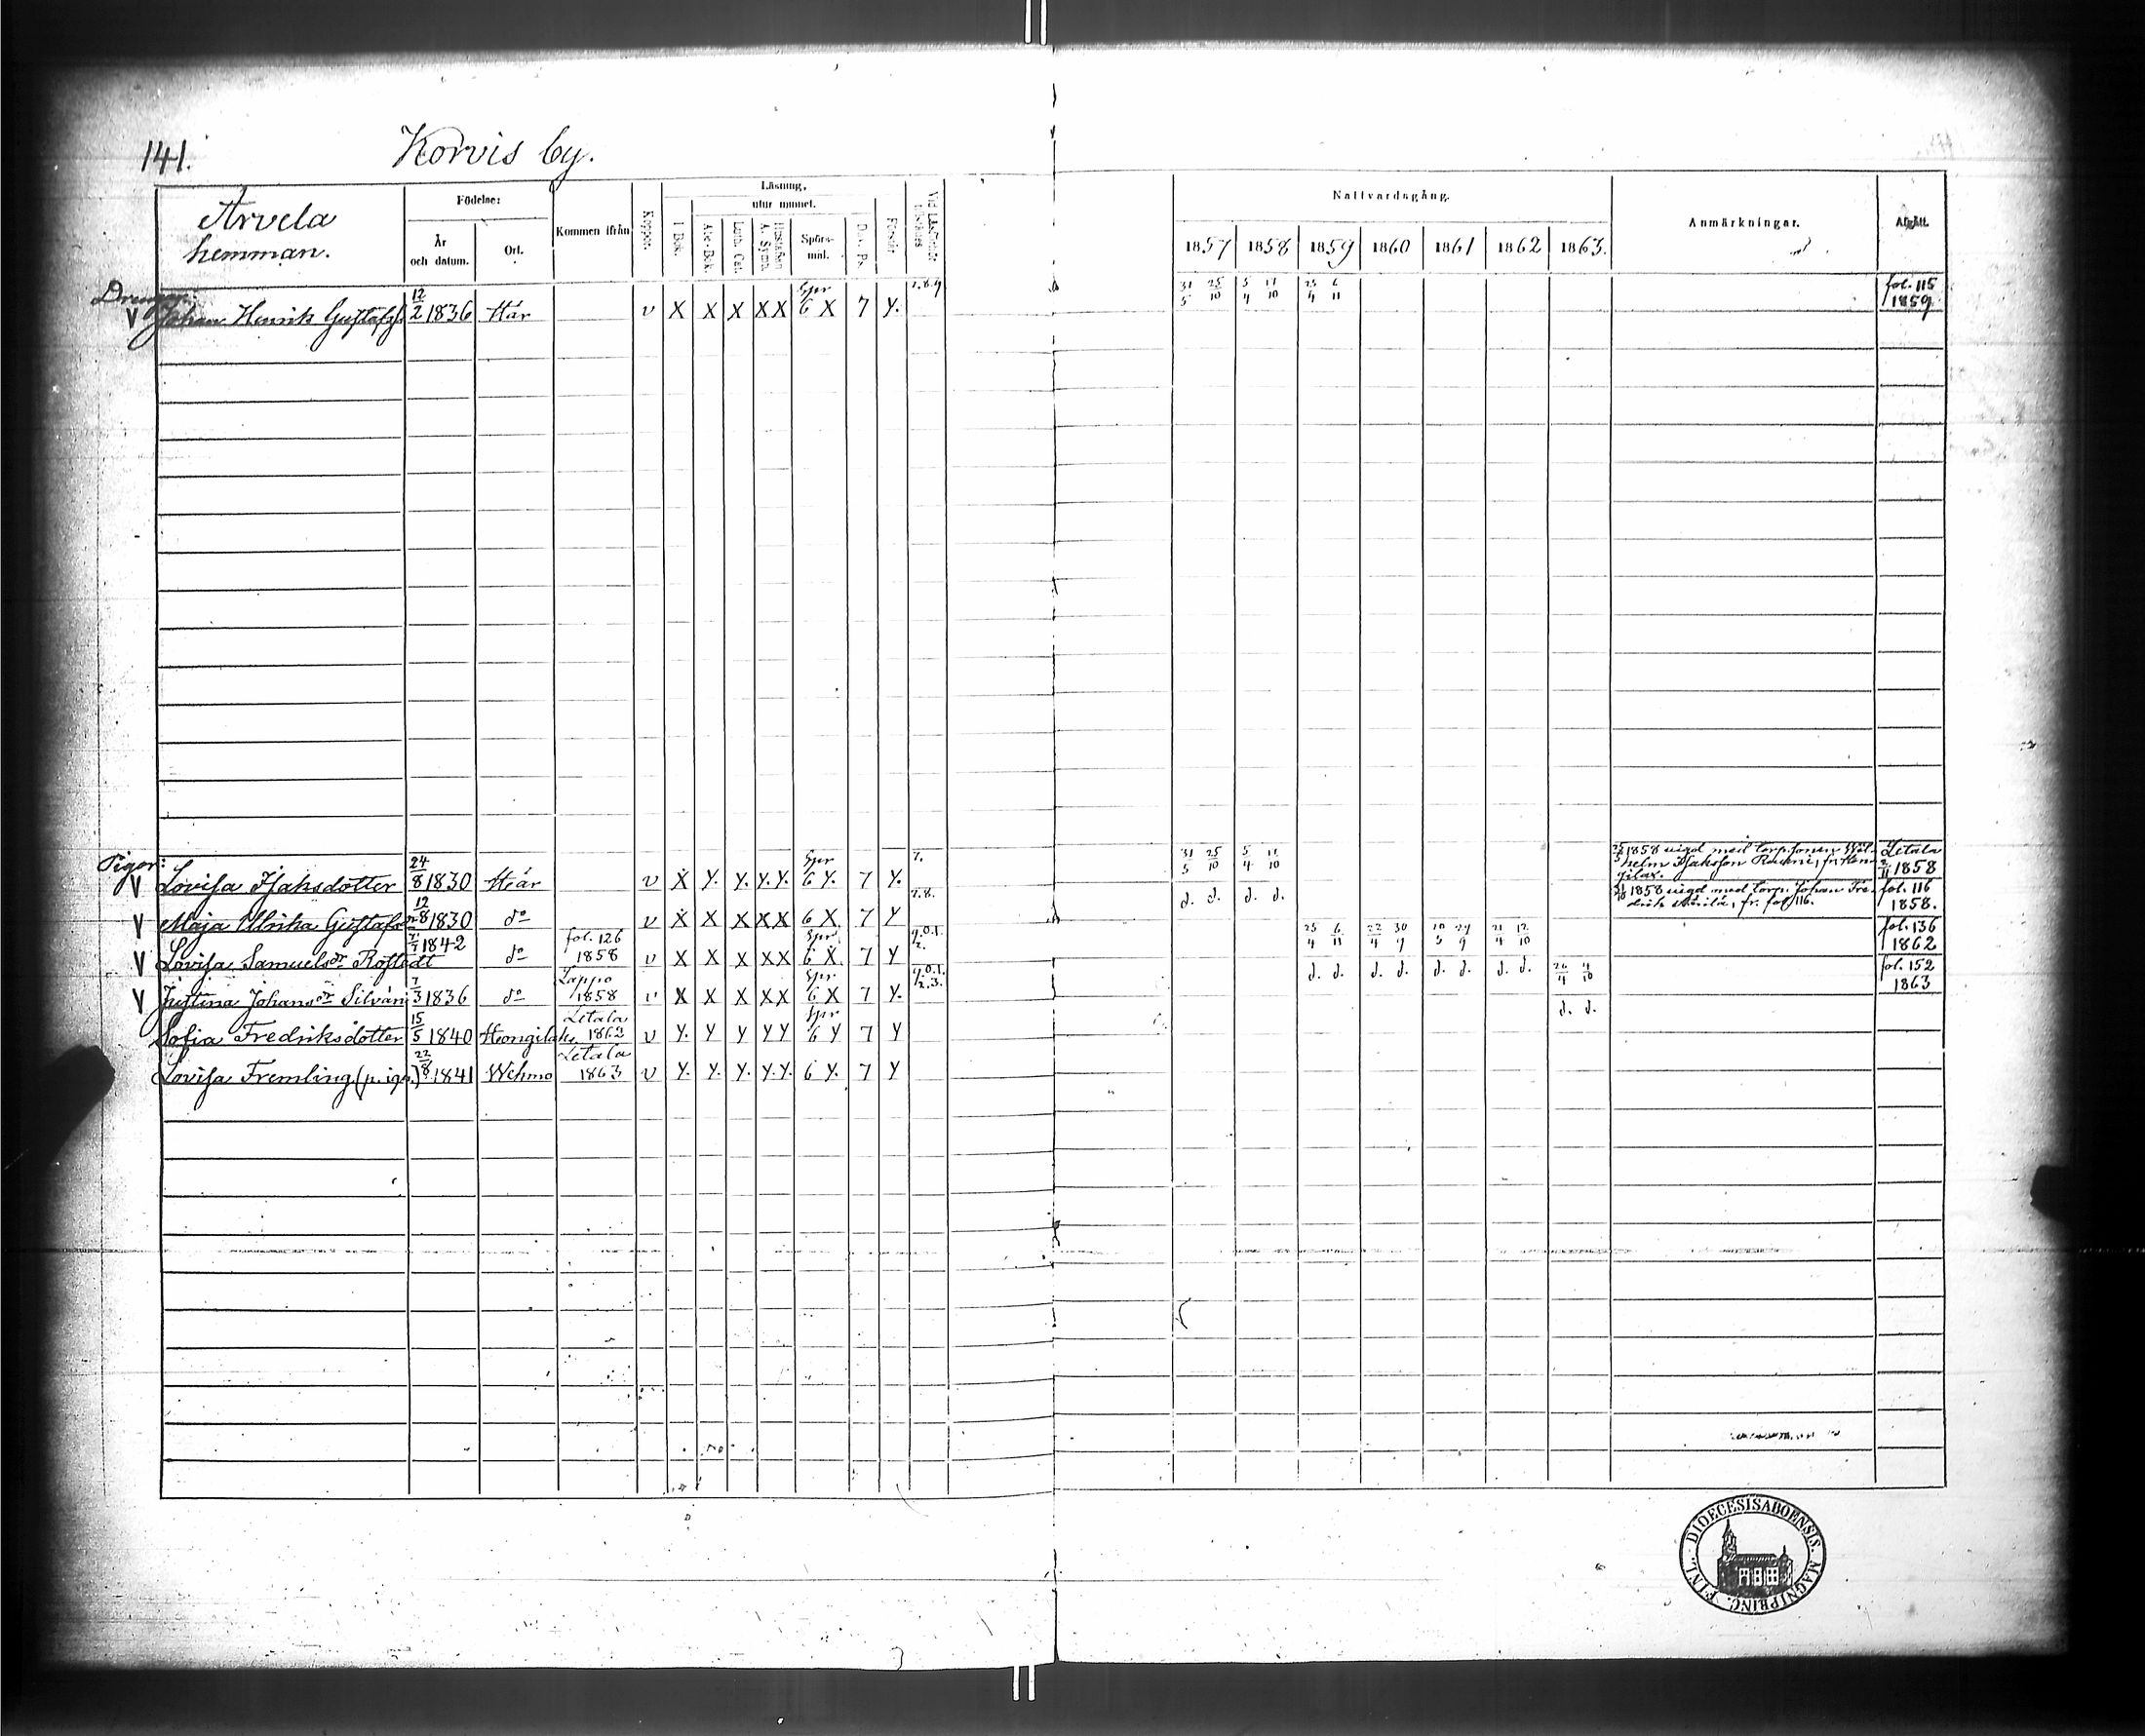 141.
Korvis by.
Arvela
hemman.
Födelse:
År
och datum.
Ort.
Kommen ifrån
Koppor.
Läsning,
utur minnet.
I Bok.
Abc-Bok.
Luth. Cat.
Hustaflan
A. Symb.
Spörs-
mål.
Dav. Ps.
Förstår
Nattvardsgång.
1857 1858 1859 1860 1861 1862 1863.
Anmärkningar.
Afgått.
Drengar:
V Johan Henrik Gustafss. 12/2 1836 Här v X X X X X Spr 6 X 7 Y. 7.8.9 31/5 25/10 5/4 17/10 25/4 6/11 fol. 115 1859
Pigor:
V Lovisa Isaksdotter 24/8 1830 Här v X Y. Y. Y. Y. Spr 6 Y. 7 Y. 7. 31/5 25/10 5/4 17/10 1858 vigd med torp.sonen Wilhelm Isaksson fr. Letala 2/11 1858
V Maja Ulrika Gustafsdr 12/8 1830 do v X X X X X 6 X 7 Y 7.8. d. d. d. d. 1858 vigd med torp. Johan Fredrik fr. fol. 116. fol. 116 1858.
V Lovisa Samuelsdr Rostedt 1842 do fol. 126 1858 v X X X X X Spr 6 X. 7 Y 9.0.1. 2. 25/4 6/11 22/4 30/9 29/9 21/4 12/10 fol. 136 1862
V Justina Johansdr Silván 7/3 1836 do Lappo 1858 v X X X X X Spr 6 X 7 Y. 9.0.1. 2.3. d. d. d. d. d. d. d. d. 26/4 4/10 fol. 152 1863
Sofia Fredriksdotter 15/5 1840 Hongilaks Letala 1862 v Y. Y Y Y Y Spr 6 Y 7 Y d. d.
Lovisa Fremling (p. ign.) 22/8 1841 Wehmo Letala 1863 v Y. Y. Y. Y. Y. 6 Y. 7 Y
DIOECESIS ABOENSIS. MAGNI PRINC. FINL.